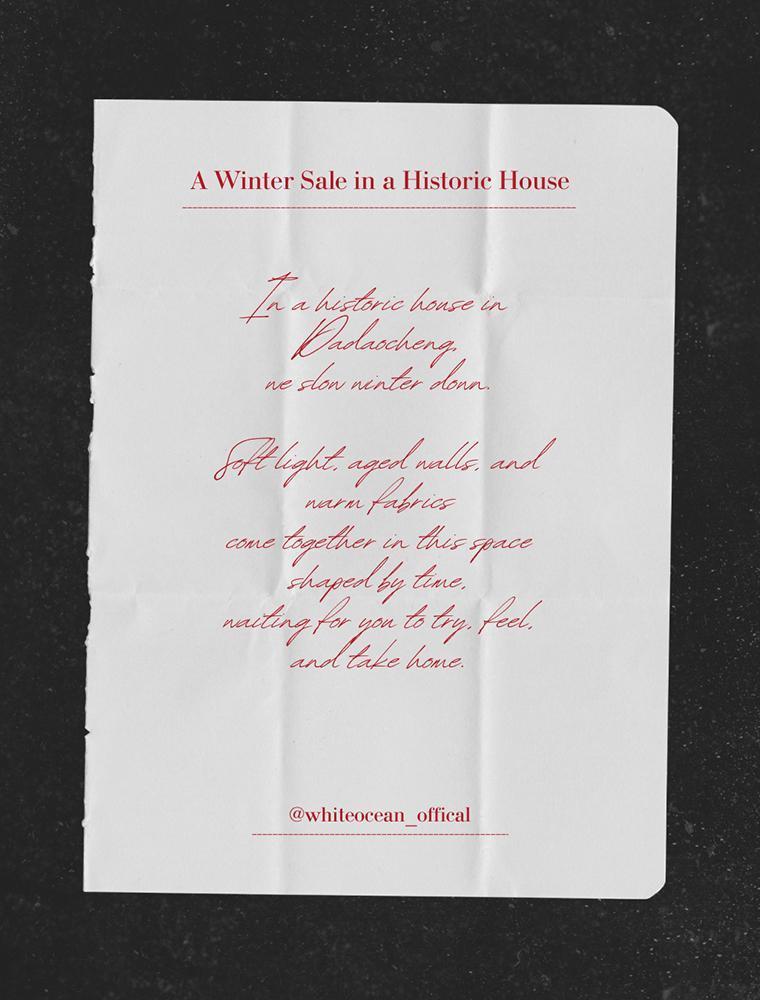 A Winter Sale in a Historic House
In a historic house in
Dadaocheng,
we slow winter down.
Soft light, aged walls, and
warm fabrics
come together in this space
shaped by time,
waiting for you to try, feel,
and take home.
@whiteocean_offical